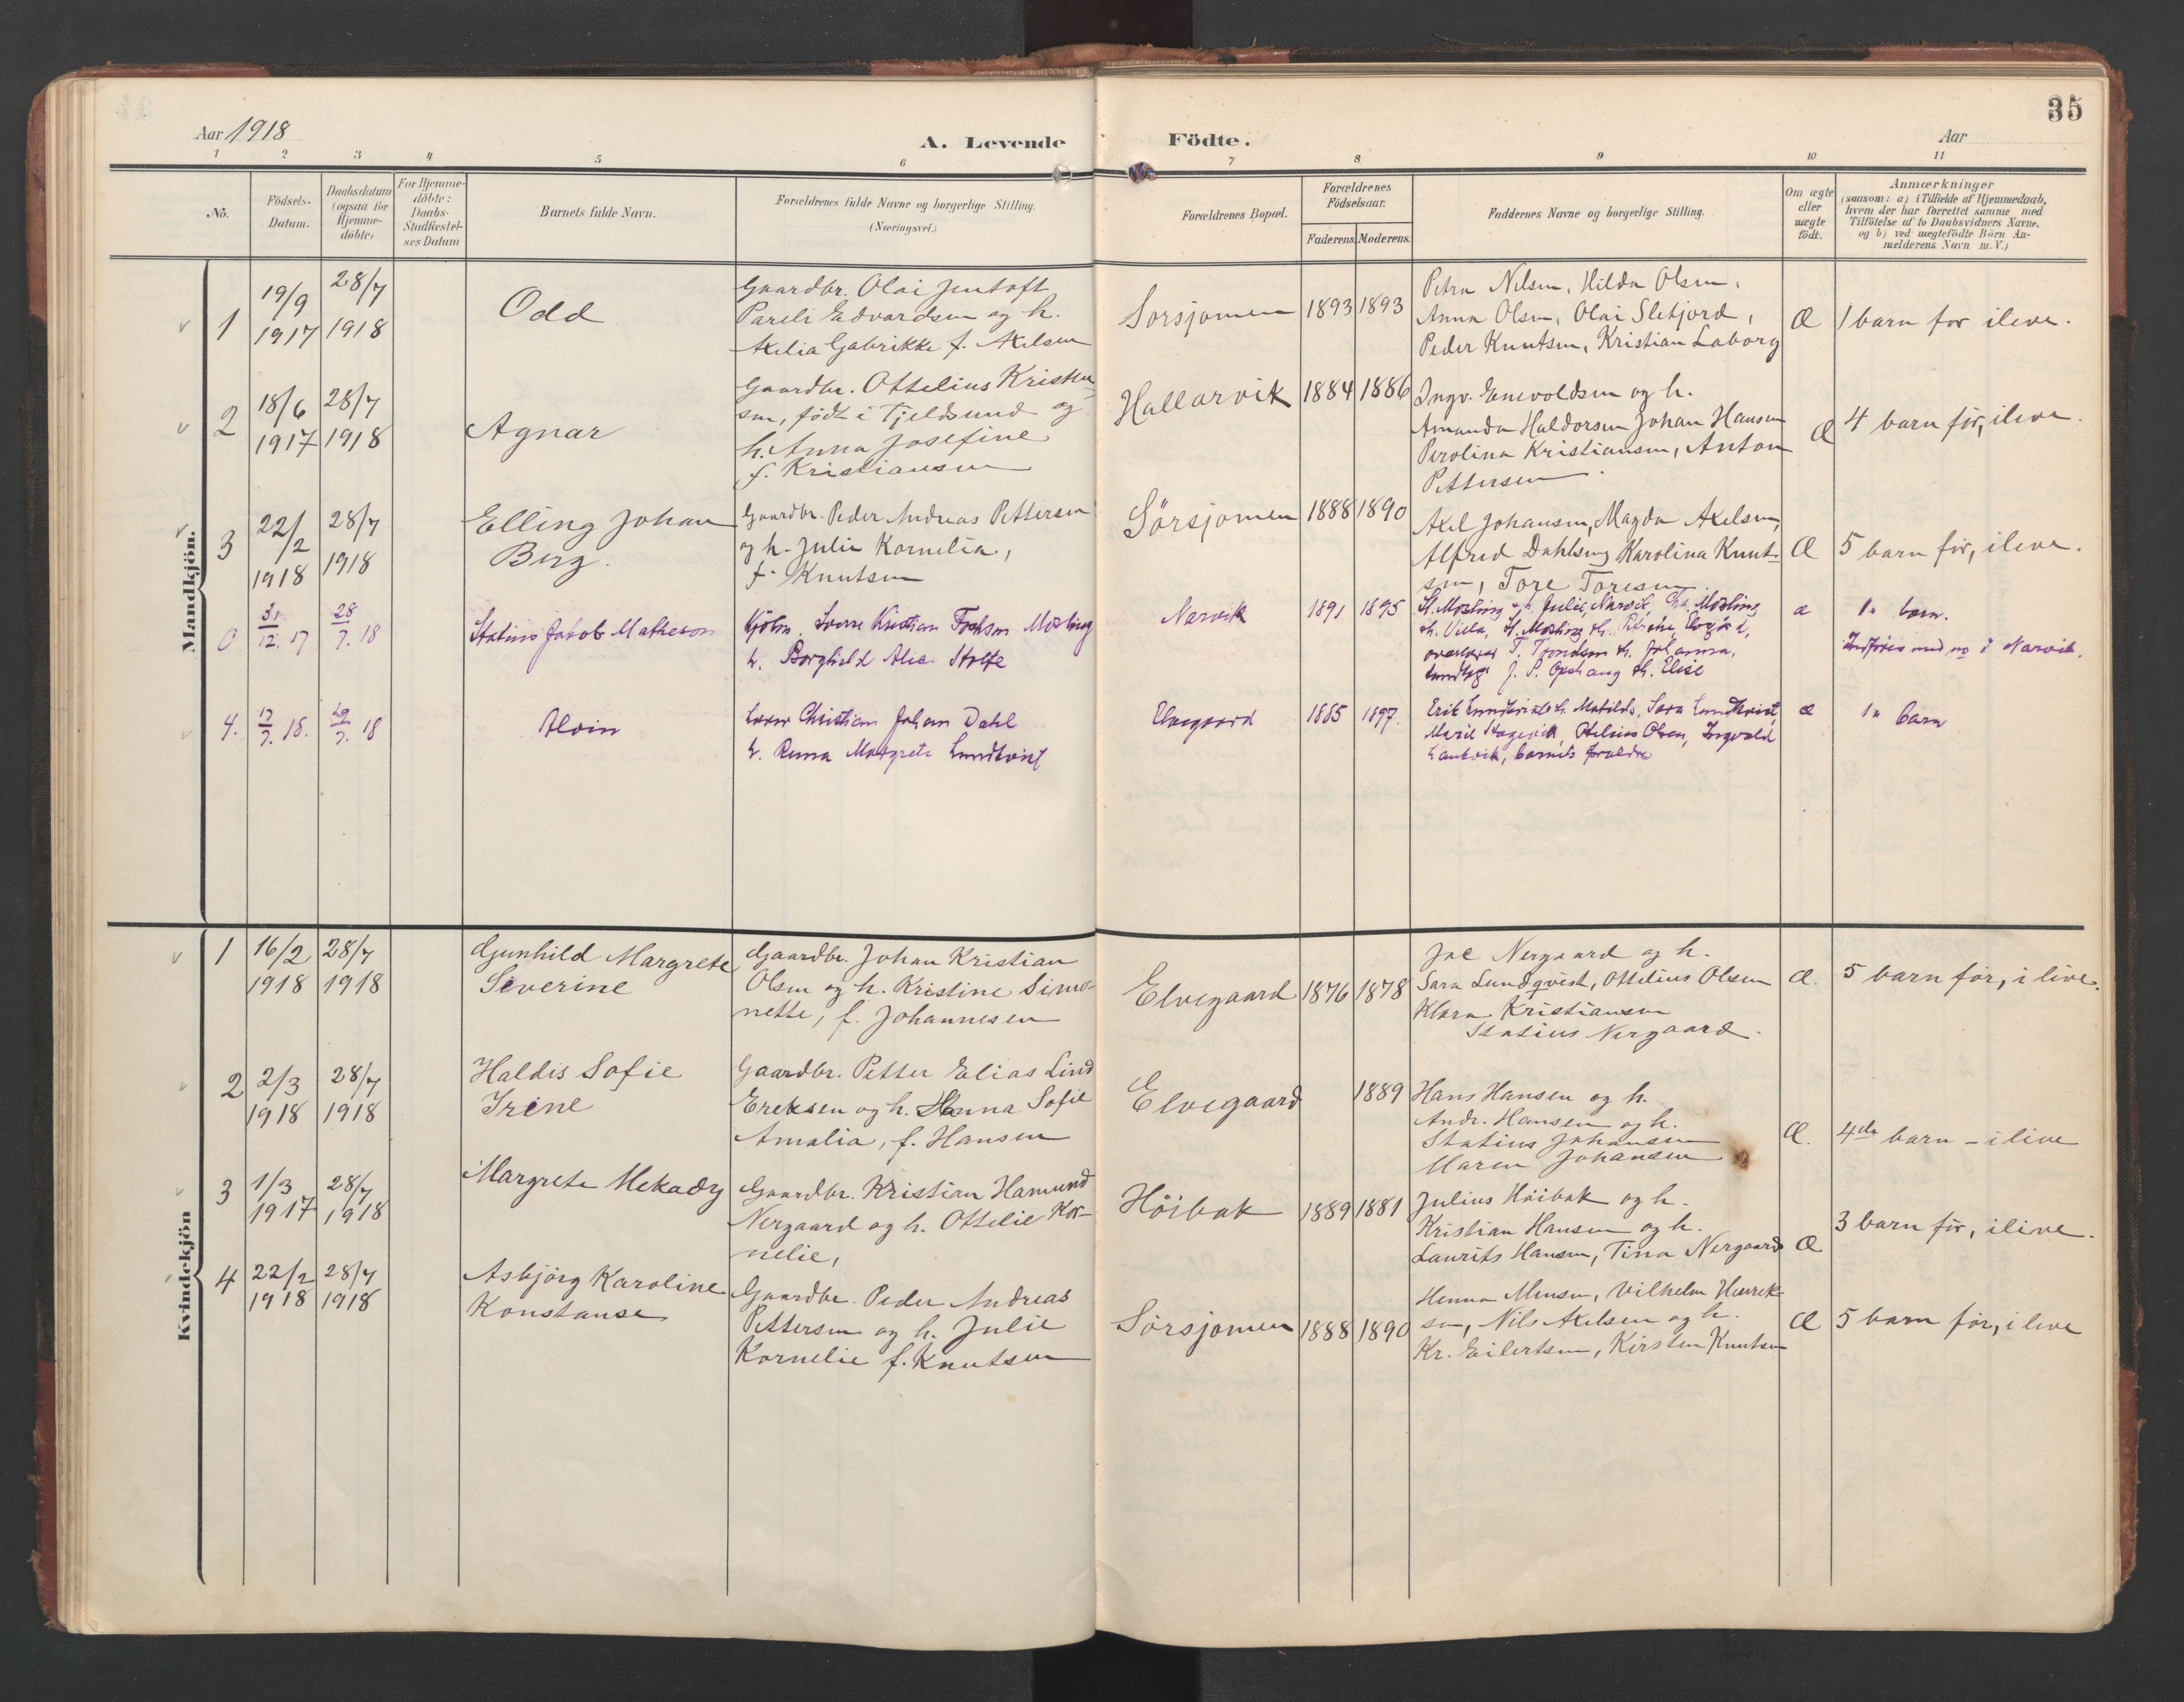 35
Aar 1918
A. Levende Födte.
Aar
1 2 3 4 5 6 7 8 9 10 11
No.
Födsels-
Datum.
Daabsdatum
(ogsaa for
Hjemme-
döbte)
For Hjemme-
döbte:
Daabs-
Stadfæstel-
ses Datum
Barnets fulde Navn.
Forældrenes fulde Navne og borgerlige Stilling.
(Næringsvei.)
Forældrenes Bopæl.
Forældrenes
Födselsaar.
Faderens. Moderens.
Faddernes Navne og borgerlige Stilling.
Om ægte
eller
uægte
födt.
Anmærkninger
(saasom: a) i Tilfælde af Hjemmedaab,
hvem der har forrettet samme med
Tilföielse af to Daabsvidners Navne,
og b) ved uægtefödte Börn An-
melderens Navn m. V.)
Mandkjön.
1
19/9
1917
28/7
1918
Odd
Gaardbr. Olai Jentoft
Pareli Edvardsen og h.
Axelia Gabrikke f. Axelsen
Sørsjomen
1893 1893
Petra Nilsen, Hilda Olsen,
Anna Olsen, Olai Sletjord,
Peder Knutsen, Kristian Laborg
Æ
1 barn før ilive.
2
18/6
1917
28/7
1918
Agnar
Gaardbr. Ottelius Kristen-
sen, født i Tjeldsund og
h. Anna Josefine
f. Kristiansen
Hallarvik
1884 1886
Ingv. Enevoldsen og h.
Amanda Haldorsen Johan Hansen
Perolina Kristiansen, Anton
Pettersen
Æ
4 barn før, ilive.
3
22/2
1918
28/7
1918
Elling Johan
Berg.
Gaardbr. Peder Andreas Pettersen
og h. Julie Kornelia,
f. Knutsen
Sörsjomen
1888 1890
Axel Johansen, Magda Axelsen,
Alfred Dahlsen, Karolina Knut-
sen, Tore Toresen.
Æ
5 barn før, ilive.
0
31/12. 17
28/7. 18
Statius Jakob Matheson
Kjøbm. Sverre Kristian Mosling
h. Borghild Alice Stolpe
Narvik
1891 1895
St. Mosling h. Julie, Narvik, Mosling
h. Villa, Mosling h.
T. Trondsen h. Johanna,
J. P. Opshaug h. Elise
æ
1. barn.
Indføres med no i Narvik.
4.
17/7. 18.
29/7. 18
Alvin
Lærer Christian Johan Dahl
h. Runa Margrete Lundkvist
Elvegaard
1885 1897.
Erik Lundkvist h. Matilde, Sara Lundkvist,
Marie Hagevik, Otelius Olsen, Ingvald
Lankvik, barnets forældre
æ
1. barn
Kvindekjön
1
16/2
1918
28/7
1918
Gunhild Margrete
Severine
Gaardbr. Johan Kristian
Olsen og h. Kristine Simo-
nette, f. Johannesen
Elvegaard
1876 1878
Joe Nergaard og h.
Sara Lundqvist, Ottelius Olsen
Klara Kristiansen
Statius Nergaard.
Æ.
5 barn før, i live.
2
2/3
1918
28/7
1918
Haldis Sofie
Irene
Gaardbr. Petter Elias Lind
Ereksen og h. Hanna Sofie
Amalia, f. Hansen
Elvegaard
1889
Hans Hansen og h.
Andr. Hansen og h.
Statius Johansen
Maren Johansen
Æ.
4de barn – i live
3
1/3
1917
28/7
1918
Margrete Mekady
Gaardbr. Kristian Hamund
Nergaard og h. Ottelie Kor-
nelie,
Höibak
1889 1881
Julius Höibak og h.
Kristian Hansen og h.
Laurits Hansen, Tina Nergaard
Æ
3 barn før, ilive.
4
22/2
1918
28/7
1918
Asbjörg Karoline
Konstanse
Gaardbr. Peder Andreas
Pettersen og h. Julie
Kornelie f. Knutsen
Sörsjomen
1888 1890
Henna Monsen, Vilhelm Henrek-
sen, Nils Axelsen og h.
Kr. Eilertsen, Kirsten Knutsen
Æ
5 barn før, i live